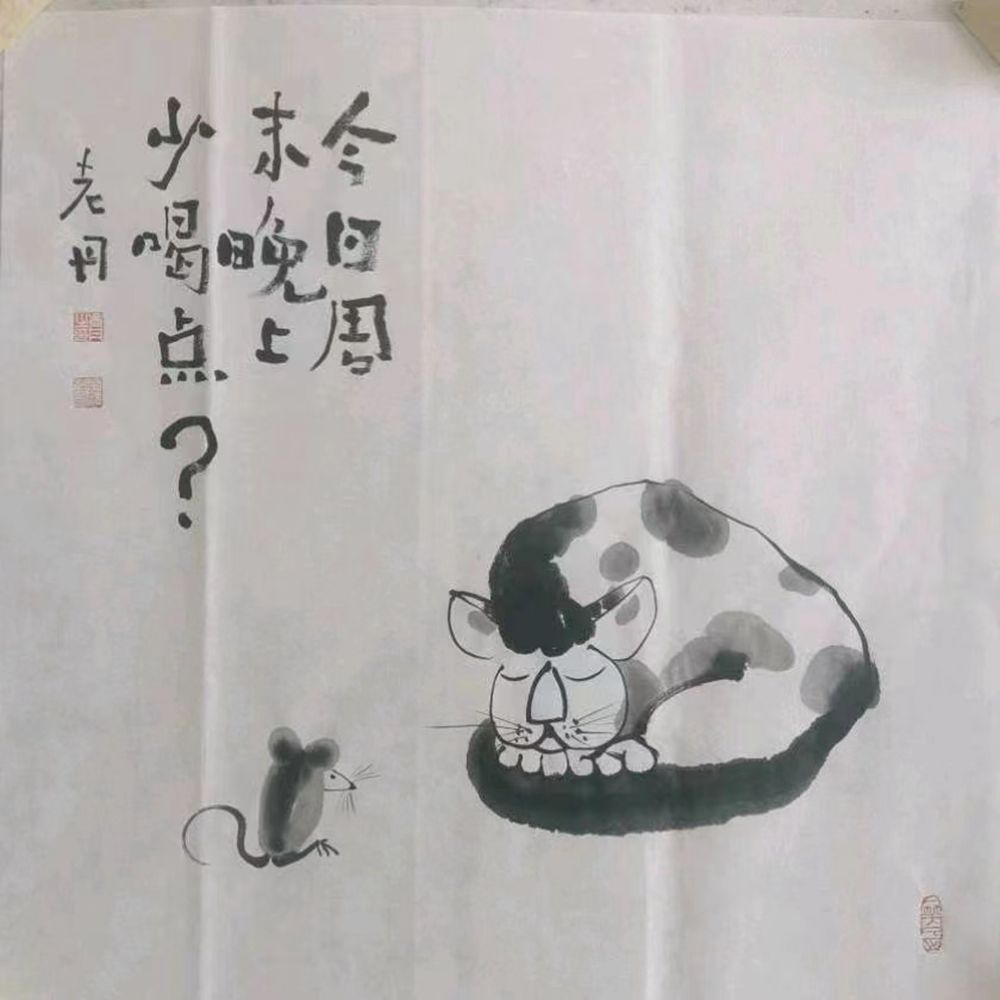 今日周
末晚上
少喝点？
老丹